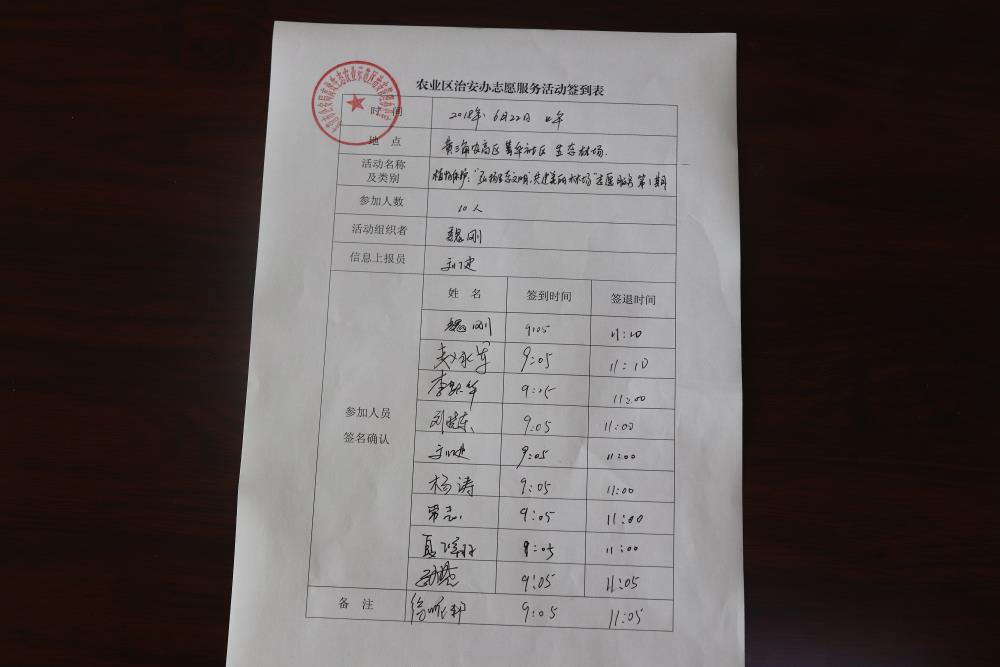 农业区治安办志愿服务活动签到表
时间 2018年6月22日 上午
地点 黄三角农高区 社区 生态林场
活动名称及类别 植物保护:"弘扬生态文明,共建美丽林场"志愿服务第1期
参加人数 10人
活动组织者 魏刚
信息上报员 刘建
参加人员签名确认
姓名 签到时间 签退时间
魏刚 9:05 11:10
赵永军 9:05 11:10
李 华 9:05 11:00
刘晓东 9:05 11:00
刘建 9:05 11:00
杨涛 9:05 11:00
9:05 11:00
9:05 11:00
9:05 11:05
备注 9:05 11:05